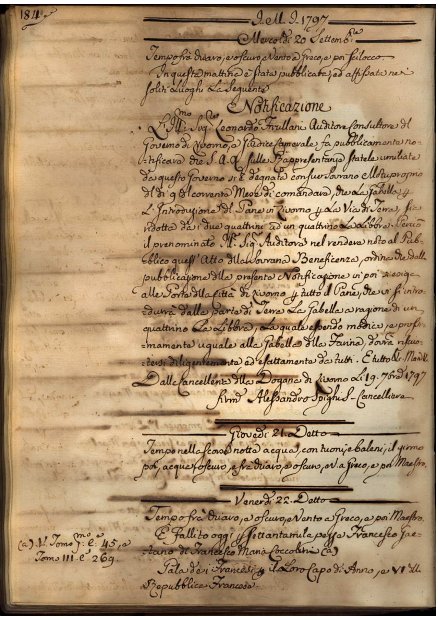 184
I. M. I. 1797
Mercoledì 20 Settemb.re
Tempo frà chiavo, e oscuro, e Vento a Greco, e poi Scilocco.
In questa mattina è stata pubblicata, ed affissata nei
soliti Luoghi La Seguente
Notificazione
L'Ill.mo Sig.re Leonardo Frullani Auditore Consultore del
Governo di Livorno, e Giudice Camerale, fa pubblicamente no-
tificare che S. A. R. sulle Rappresentanze Statele umiliate
da questo Governo si è degnata con suo Sovrano
del dì 9 del corrente Mese di comandare, che La Gabella p
L'Introduzione del Pane in Livorno p La Via di Terra, sia
ridotta da i due quattrini ad un quattrino La Libbra. Perciò
il prenominato Ill. Sig. Auditore nel rendere noto al Pub-
blico quest'Atto della Sovrana Beneficenza, ordina che dalla
pubblicazione della presente Notificazione in poi si esiga
alle Porte della Città di Livorno p tutto il Pane, che vi s'intro-
durrà dalla parte di Terra La Gabella a ragione di un
quattrino La Libbra, La quale essendo modica, e prossi-
mamente uguale alla Gabella della Farina, dovrà riscuo-
tersi diligentemente ed esattamente da tutti. E tutto
Dalla Cancelleria della Dogana di Livorno Li 19. 7bre 1797
Firm. Alessandro Cancelliere
Giovedì 21. Detto
Tempo nella scorsa notte acqua, con tuoni, e baleni, il giorno
poi, acqua, e oscuro, e frà chiavo, e oscuro, e V. a Greco, e poi Maestro.
Venerdì 22. Detto
Tempo frà chiavo, e oscuro, e Vento a Greco, e poi Maestro.
È Fallito oggi p Settantamila pezze Francesco Gae-
tano di Francesco Maria Coccolini (a)
(a) V. Tomo p.mo C. 45, e
Tomo III C. 269.
Gala de' i Francesi p il Loro Capo di Anno, e VI della
Repubblica Francese.